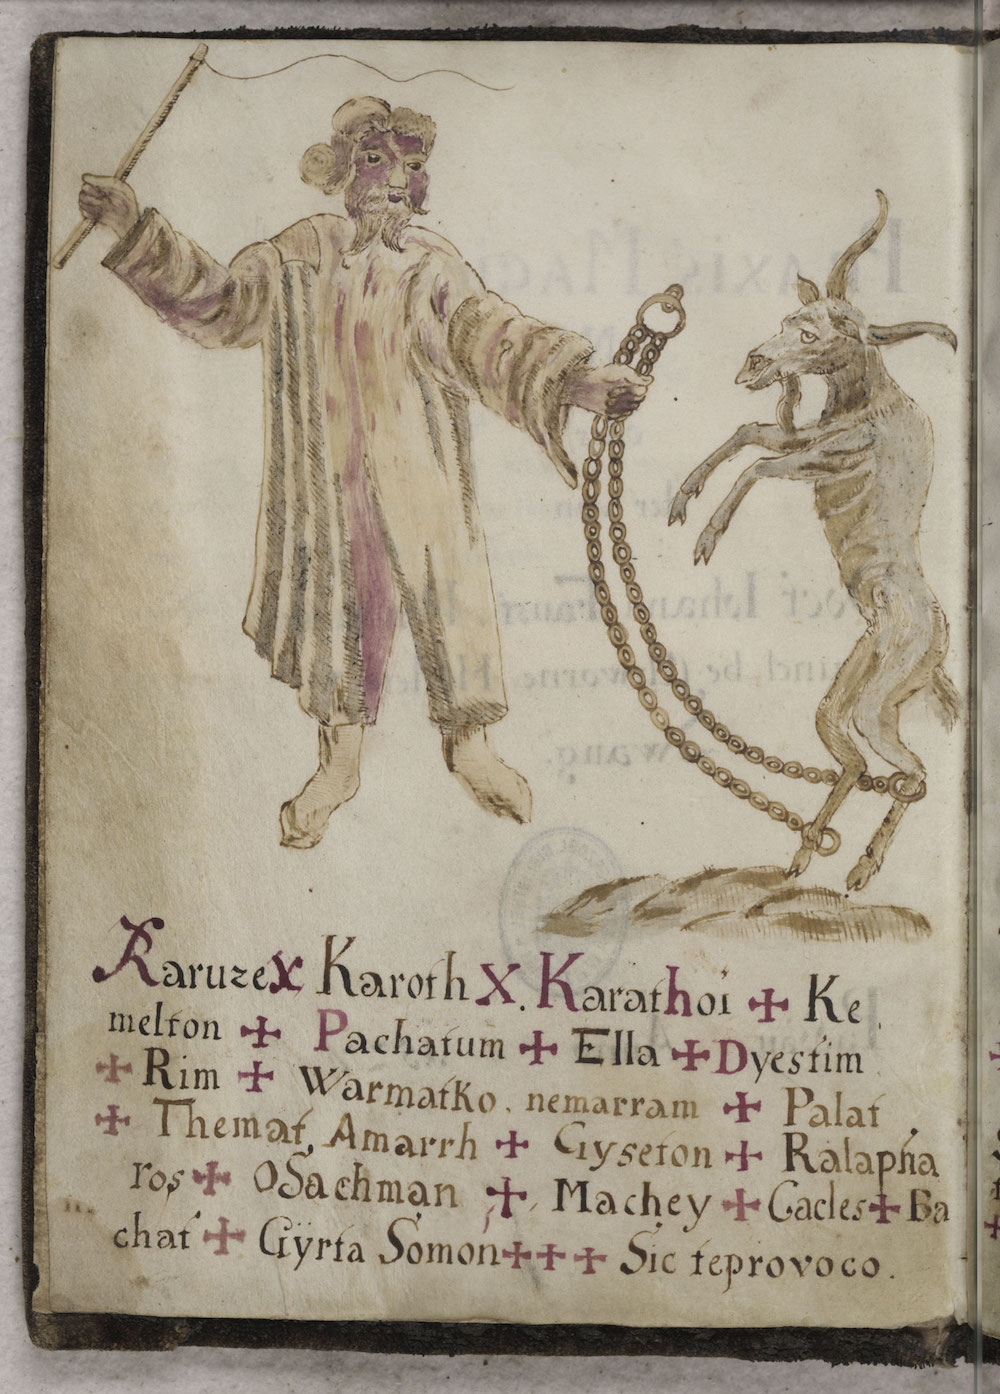 Karuzex Karoth X. Karathoi + Ke
melton + Pachatum + Ella + Dyestim
+ Rim + Warmatko. nemarram + Palat
+ Themat, Amarrh + Gyseton + Ralapha
ros + OSachman +. Machey + Gacles + Ba
chat + Gÿrta Somon + + + Sic teprovoco.